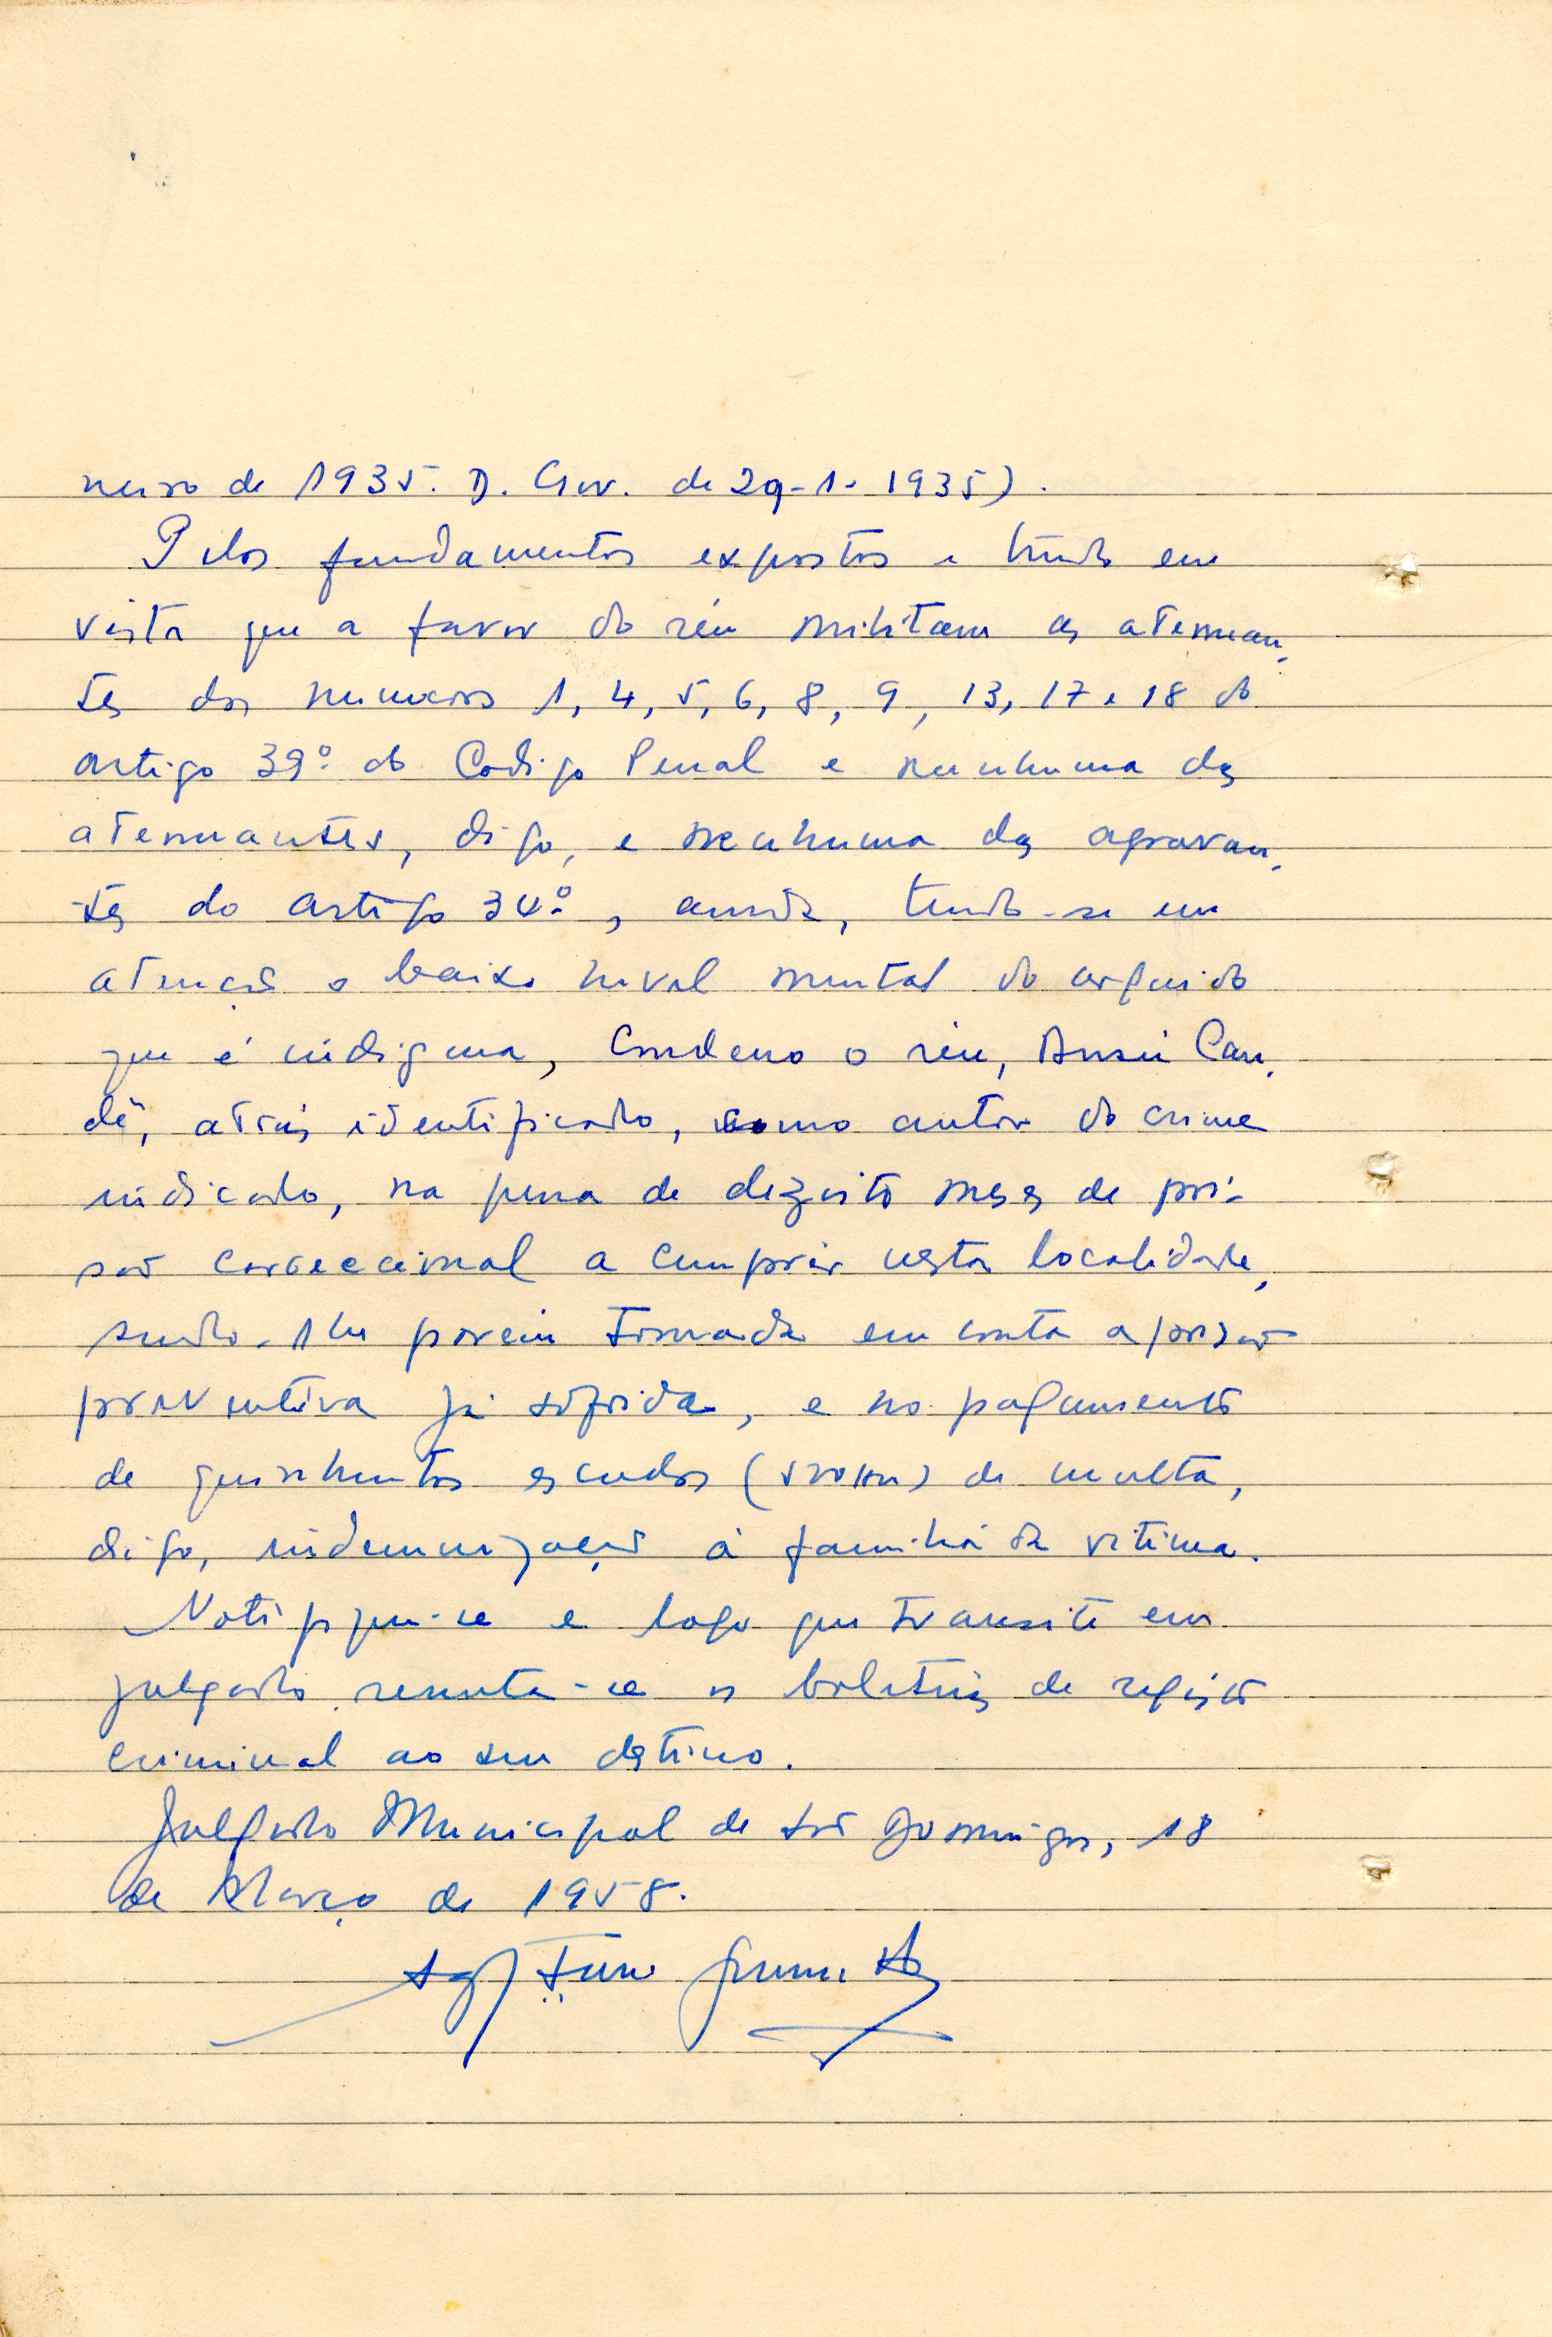 neiro de 1935. D. Gov. de 29-1-1935).
Pelos fundamentos expostos e tendo em
vista que a favor do réu militam as atenuan-
tes dos numeros 1, 4, 5, 6, 8, 9, 13, 17 e 18 do
artigo 39º do Codigo Penal e nenhuma das
atenuantes, digo, e nenhuma das agravan-
tes do artigo 34º, ainda, tendo-se em
atenção o baixo nivel mental do arguido
que é indigena, Condeno o réu, Ansú Can-
dé, atrás identificado, como autor do crime
indicado, na pena de dezoito meses de pri-
são correccional a cumprir nesta localidade,
sendo-lhe porém tomada em conta a prisão
preventiva já sofrida, e no pagamento
de quinhentos escudos (500$00) de multa,
digo, indemnização á familia da vitima.
Notifique-se e logo que transite em
julgado remeta-se os boletins de registo
criminal ao seu destino.
Julgado Municipal de São Domingos, 18
de Março de 1958.